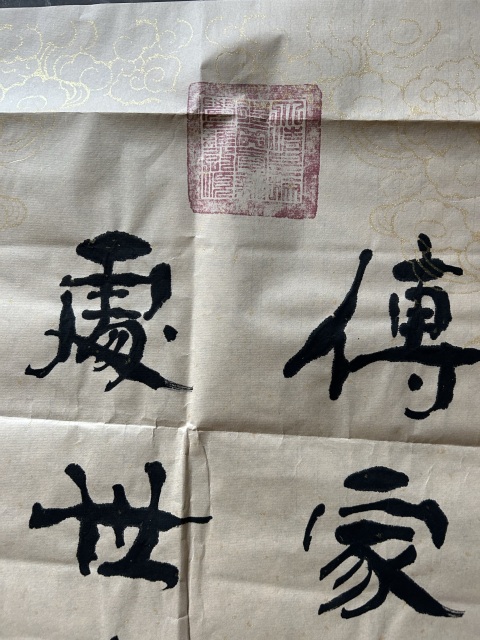 傳家
處世